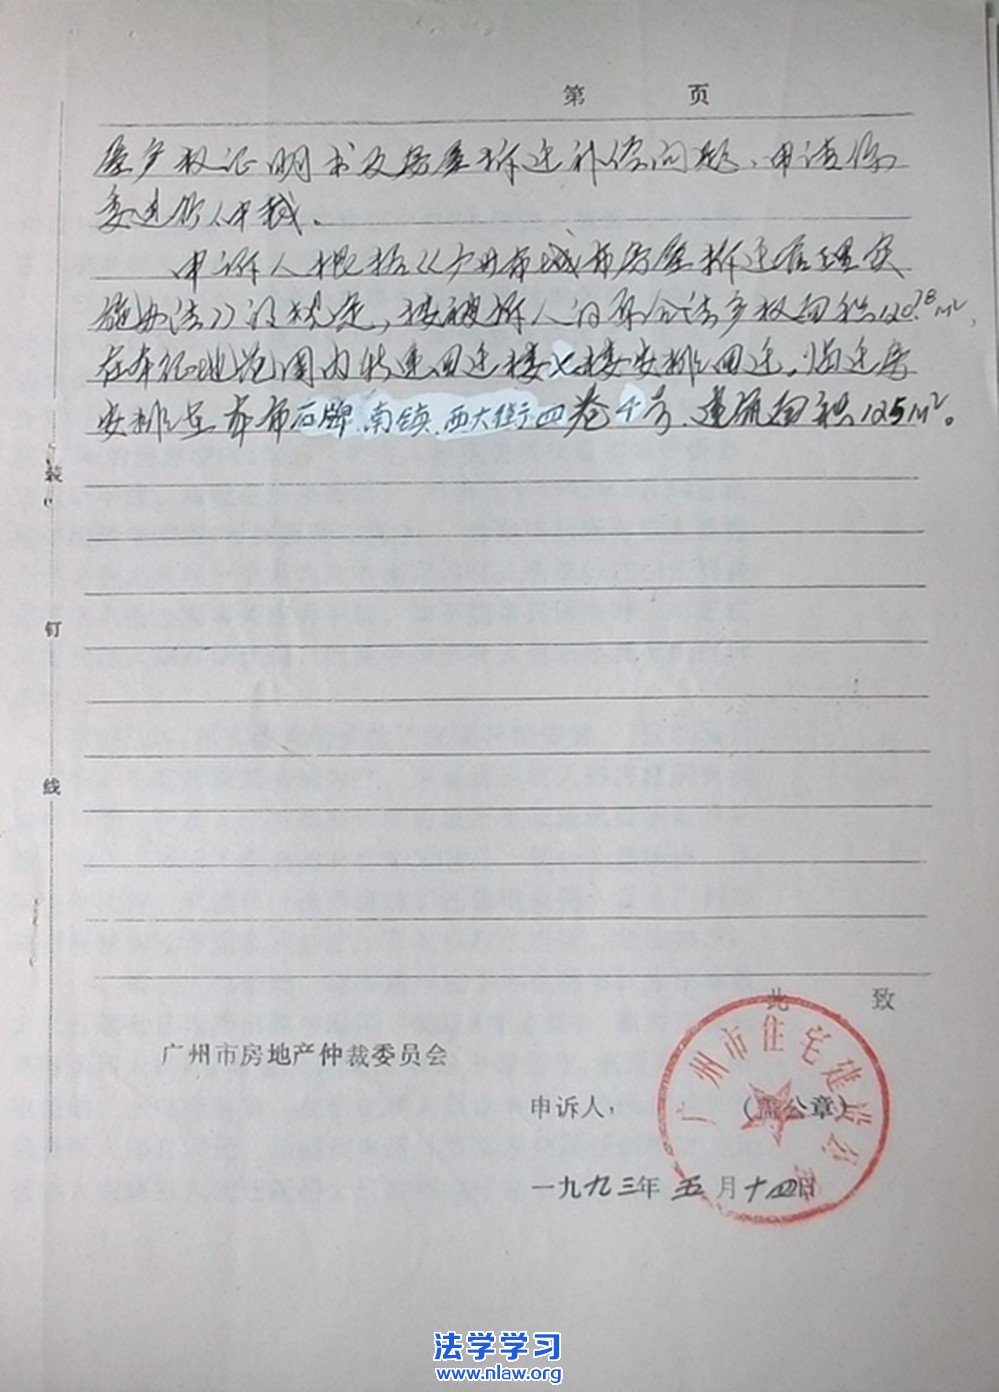 第 页
屋产权证明书及房屋拆迁补偿问题,申请你
委进行仲裁。
申诉人根据《广州市城市房屋拆迁管理实
施办法》的规定,按被诉人的原合法产权面积120.78m²,
在本征地范围内新建回迁楼 楼安排回迁。临迁房
安排在本市石牌.南镇.西大街四巷 号.建筑面积125m²。
装
钉
线
此 致
广州市房地产仲裁委员会
申诉人: (盖公章)
一九九三年 五 月十四日
广州市住宅建设公司
法学学习
www.nlaw.org